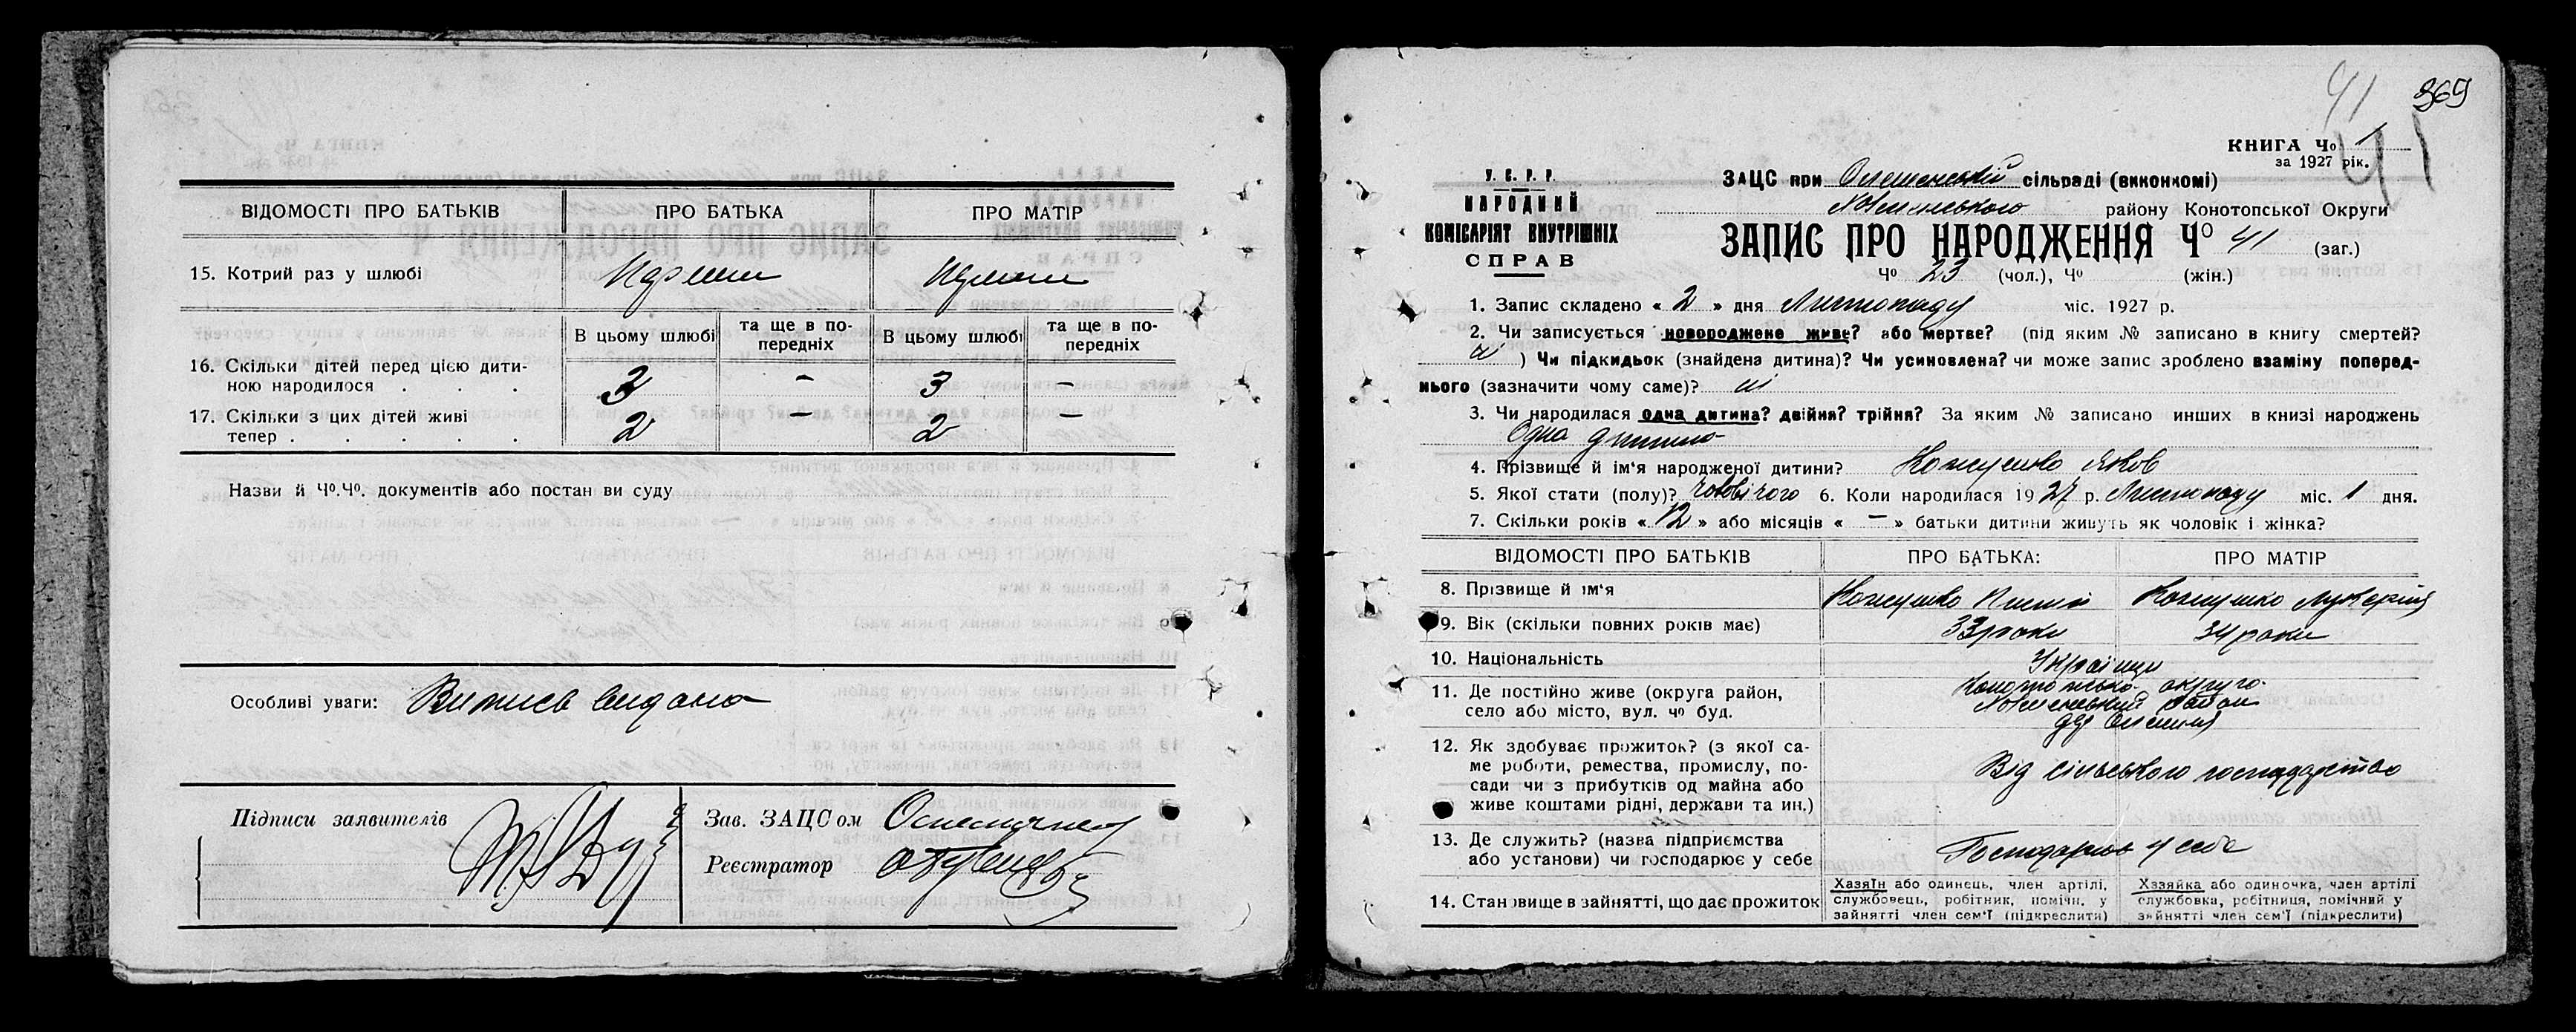 ВІДОМОСТІ ПРО БАТЬКІВ ПРО БАТЬКА ПРО МАТІР
15. Котрий раз у шлюбі
В цьому шлюбі та ще в по-передніх В цьому шлюбі та ще в по-передніх
16. Скільки дітей перед цією дити-
ною народилося . . . 3 – 3 –
17. Скільки з цих дітей живі
тепер . . . . . 2 – 2 –
Назви й Чо.Чо. документів або постан ви суду
Особливі уваги: Витись видано
Підписи заявителів
Зав. ЗАЦСом
Реєстратор
41 369
КНИГА Чо 1
за 1927 рік.
41
У. С. Р. Р.
НАРОДНИЙ
КОМІСАРІЯТ ВНУТРІШНІХ
СПРАВ
ЗАЦС при сільраді (виконкомі)
району Конотопської Округи
ЗАПИС ПРО НАРОДЖЕННЯ Чо 41 (заг.)
Чо 23 (чол.), Чо (жін.)
1. Запис складено « 2 » дня Листопаду міс. 1927 р.
2. Чи записується новороджене живе? або мертве? (під яким № записано в книгу смертей?
) Чи підкидьок (знайдена дитина)? Чи усиновлена? чи може запис зроблено взаміну поперед-
нього (зазначити чому саме)? ні
3. Чи народилася одна дитина? двійня? трійня? За яким № записано инших в книзі народжень
Одна дитина
4. Прізвище й ім'я народженої дитини? Кожушко Яков
5. Якої стати (полу)? чоловічого 6. Коли народилася 1927 р. Листопаду міс. 1 дня.
7. Скільки років « 12 » або місяців « – » батьки дитини живуть як чоловік і жінка?
ВІДОМОСТІ ПРО БАТЬКІВ ПРО БАТЬКА: ПРО МАТІР
8. Прізвище й ім'я Кожушко Кожушко Лукерія
9. Вік (скільки повних років має) 33 роки 34 роки
10. Національність Українці
11. Де постійно живе (округа район,
село або місто, вул. чо буд. Конотопська округа
район
12. Як здобуває прожиток? (з якої са-
ме роботи, ремества, промислу, по-
сади чи з прибутків од майна або
живе коштами рідні, держави та ин.) Від сільського господарства
13. Де служить? (назва підприємства
або установи) чи господарює у себе Господарює у себе
14. Становище в зайнятті, що дає прожиток
Хазяїн або одинець, член артілі,
службовець, робітник, помічн. у
зайнятті член сем'ї (підкреслити)
Хазяйка або одиночка, член артілі
службовка, робітниця, помічний у
зайнятті член сем'ї (підкреслити)